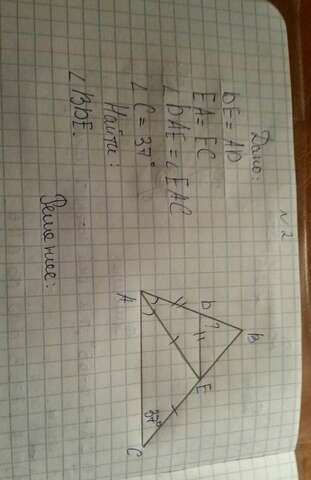 №2
Дано:
DE = AD
EA = EC
∠DAE = ∠EAC
∠C = 37°
Найти:
∠BDE.
Решение:
A
D
?
B
E
37°
C